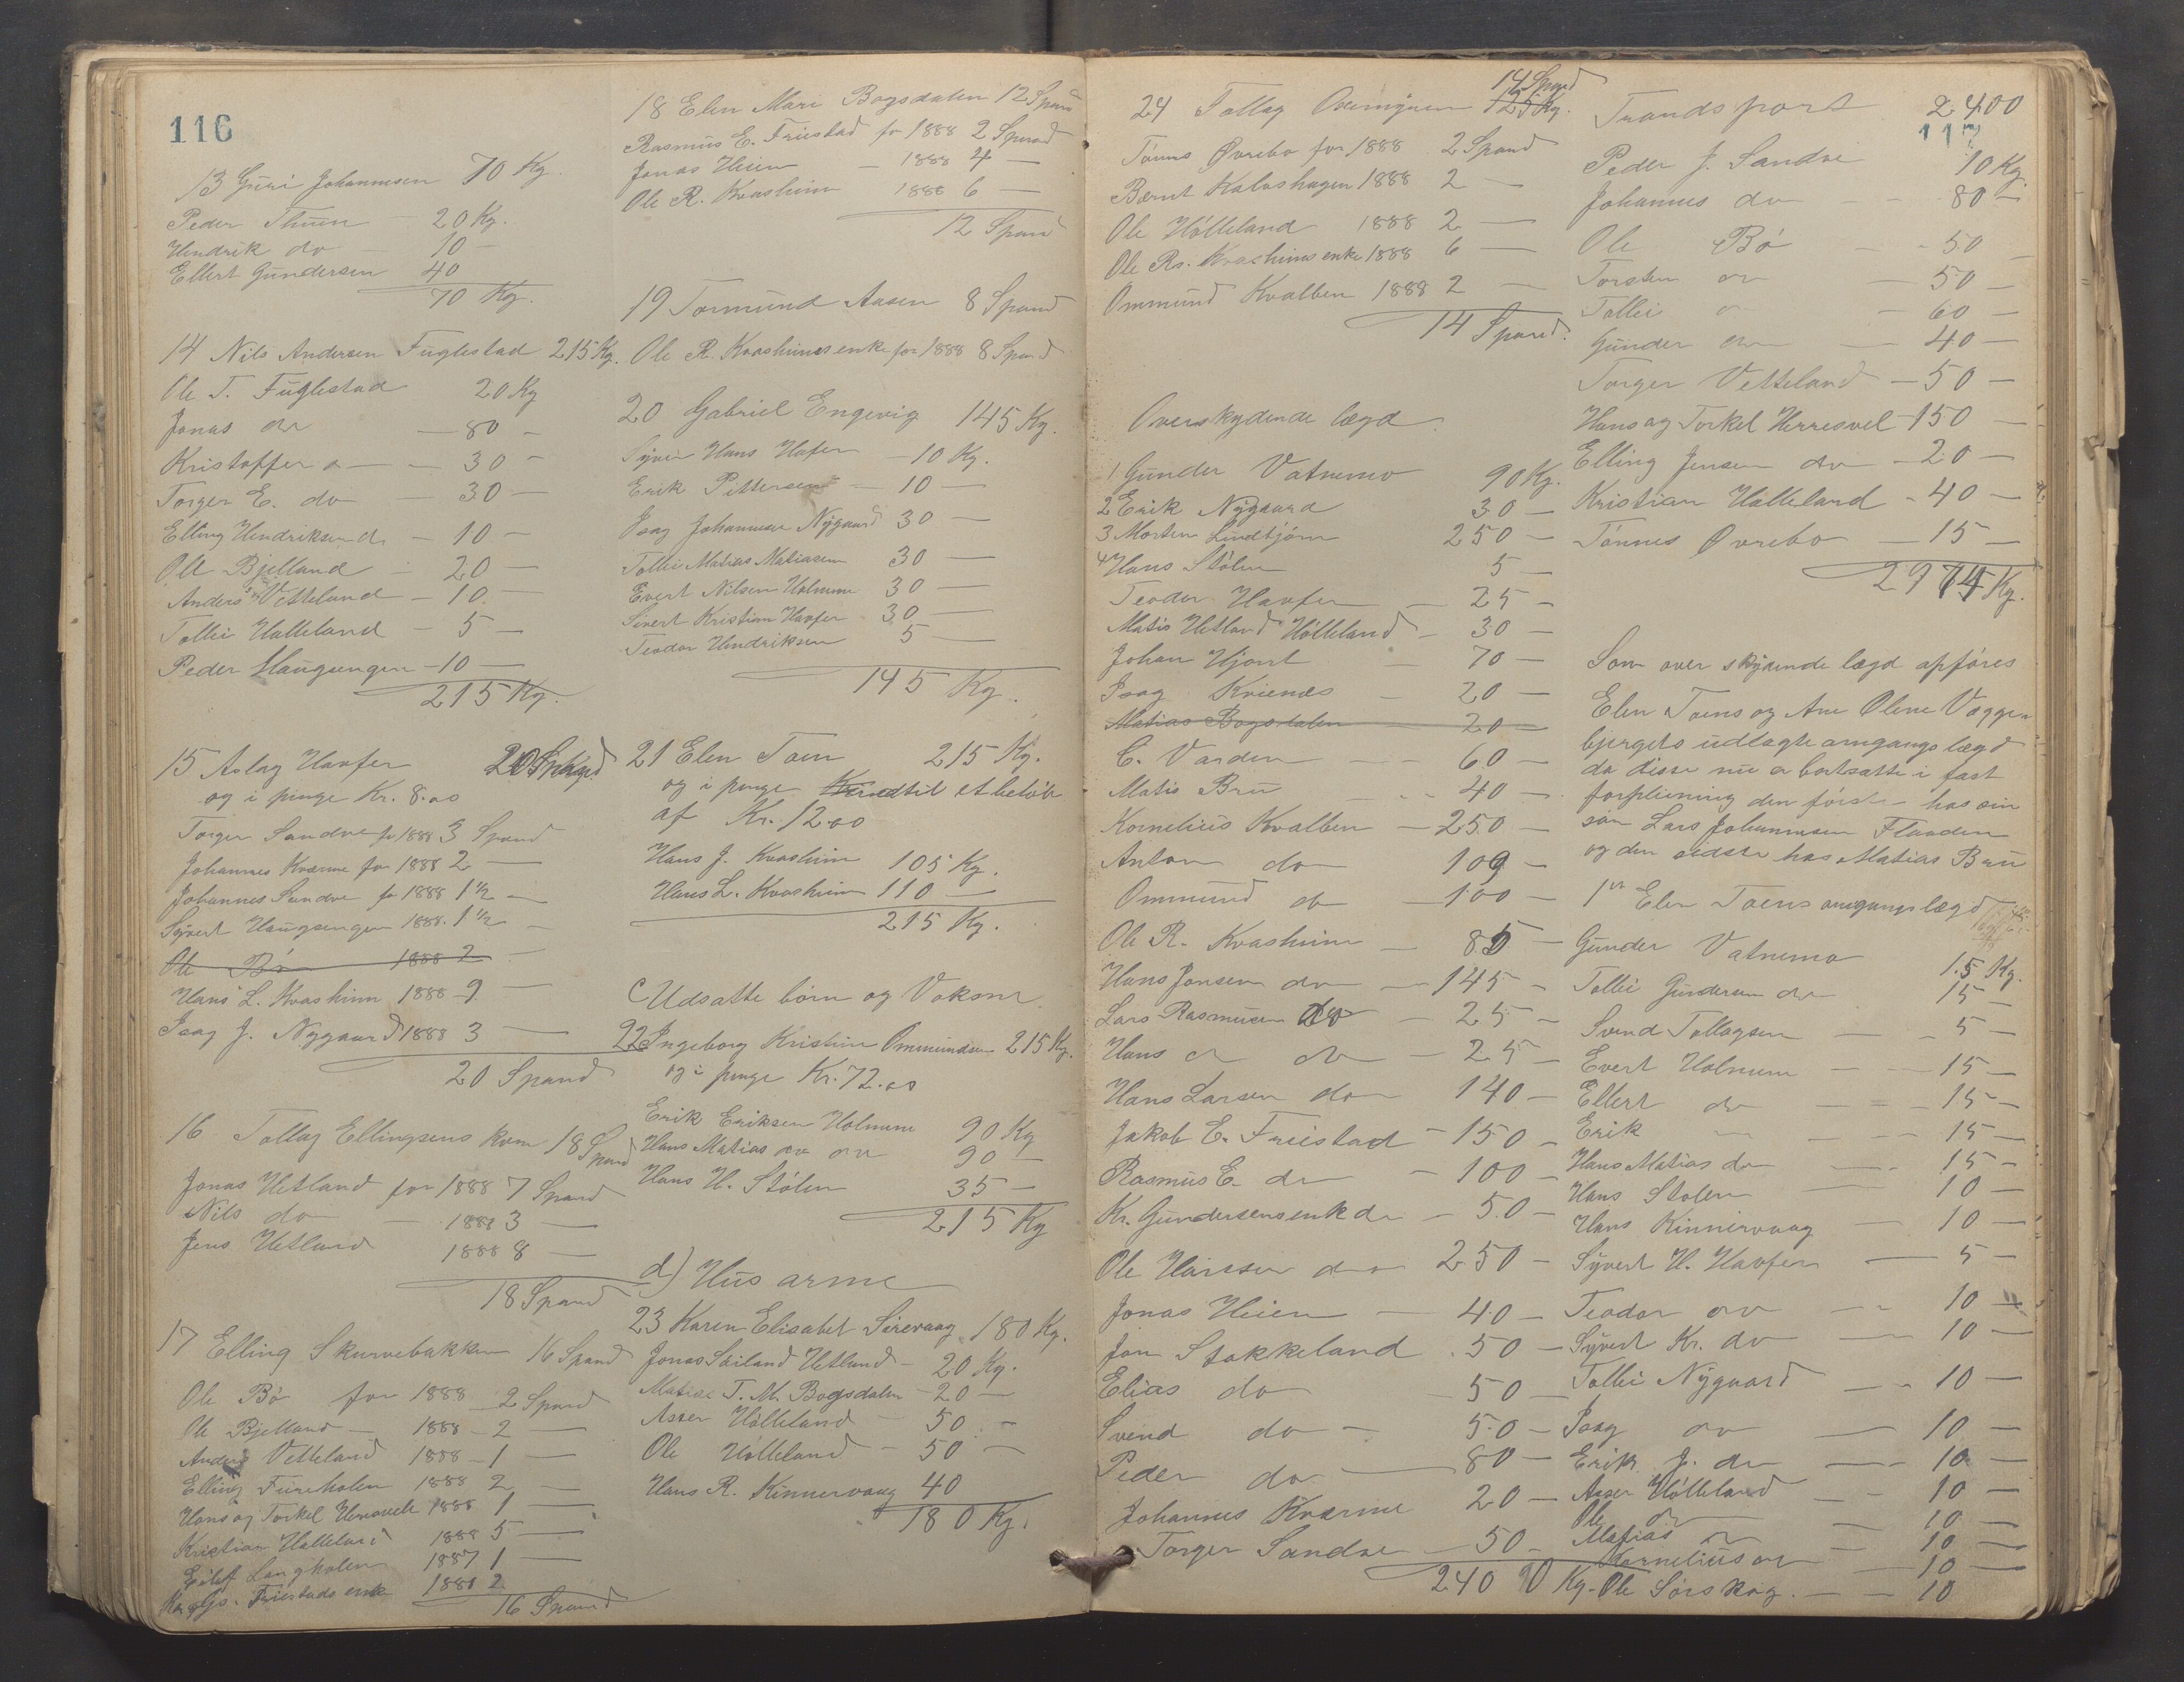 116
13 Guri Johannesen 70 Kg.
Peder Thuen 20 Kg.
Hendrik do 10 —
Ellert Gundersen 40
70 Kg.
14 Nils Andersen Fuglestad 215 Kg.
Ole T. Fuglestad 20 Kg
Jonas do — 80 —
Kristoffer do — 30 —
Torger E. do — 30 —
Elling Hendriksen do — 10 —
Ole Bjelland — 20 —
Anders Vetteland — 10 —
Tollei Halleland — 5 —
Peder Haugsengen — 10 —
215 Kg.
15 Aslag Havfer 20 Spand
og i pinge Kr. 8.00
Torger Sandve for 1888 3 Spand
Johannes Kværme for 1888 2 —
Johannes Sandve for 1888 1 1/2 —
Syvert Haugsengen 1888 1 1/2 —
Ole Bö 1888 2 —
Hans L. Kvashim 1888 9 —
Isag J. Nygaard 1888 3 —
20 Spand
16 Tollag Ellingsens kone 18 Spand
Jonas Hetland for 1888 7 Spand
Nils do — 1888 3 —
Jens Hetland 1888 8 —
18 Spand
17 Elling Skurvebakken 16 Spand
Ole Bö for 1888 2 Spand
Ole Bjelland — 1888 — 2 —
Anders Vetteland 1888 — 1 —
Elling Fureholen 1888 2 —
Hans og Torkel Herresvele 1888 1 —
Kristian Halleland 1888 5 —
Eilef Langholen 1887 1 —
Friestads enke 1888 2
16 Spand
18 Elen Mari Bogsdalen 12 Spand
Rasmus E. Friestad for 1888 2 Spand
Jonas Heien — 1888 4 —
Ole R. Kvashim 1888 6 —
12 Spand
19 Tormund Aasen 8 Spand
Ole R. Kvashims enke for 1888 8 Spand
20 Gabriel Engevig 145 Kg.
Syver Hans Hafer — 10 Kg.
Erik Pittersen — 10 —
Isag Johannesen Nygaard 30 —
Tollei Matias Matiasen 30 —
Evert Nilsen Holmene 30 —
Sivert Kristian Havfer 30 —
Teodor Hendriksen 5 —
145 Kg.
21 Elen Toen 215 Kg.
og i penge et belöb
af Kr. 12.00
Hans J. Kvashim 105 Kg.
Hans L. Kvashim 110 —
215 Kg.
c Udsatte börn og Voksne.
22 Ingeborg Kristine Ommundsen 215 Kg.
og i penge Kr. 72.00
Erik Eriksen Holmene 90 Kg
Hans Matias do do 90 —
Hans H. Stölen 35 —
215 Kg
d) Husarme
23 Karen Elisabet Sirevaag 180 Kg.
Jonas Sæiland Hetland — 20 Kg.
Matias T. M. Bogsdalen — 20 —
Asser Hölleland 50 —
Ole Hölleland — 50 —
Hans R. Kinnervaag 40
180 Kg.
24 Tollag 14 Spand
125 Kg.
Tönnes Øvrebo for 1888 2 Spand
Bernt Kalvshagen 1888 2 —
Ole Hölleland 1888 2 —
Ole Rs. Kvashims enke 1888 6 —
Ommund Kvalben 1888 2 —
14 Spand.
Overskydende lægd.
1 Gunder Vatnemo 90 Kg.
2 Erik Nygaard 30 —
3 Morten Lindtjörn 250 —
4 Hans Stölen 5 —
Teodor Havfer — 25 —
Matis Hetland Hölleland — 30 —
Johan Hjort — 70 —
Isag Kvienes — 20 —
Matias Bogsdalen 20 —
C. Varden — 60 —
Matis Bru — 40 —
Kornelius Kvalben — 250 —
Anton do 100 —
Ommund do — 100 —
Ole R. Kvashim — 85 —
Hans Jonsen do — 145 —
Lars Rasmusen do — 25 —
Hans do do — 25 —
Hans Larsen do — 140 —
Jakob E. Friestad — 150 —
Rasmus E. do — 100 —
Kr. Gundersens enke do — 50 —
Ole Hansen do 250 —
Jonas Heien — 40 —
Jon Stokkeland . 50 —
Elias do — 50 —
Svend do — 50 —
Peder do — 80 —
Johannes Kværme 20 —
Torger Sandve — 50 —
2400 Kg.
Trandsport 2400
117
Peder J. Sandve 10 Kg.
Johannes do — 80 —
Ole Bö — 50 —
Torsten do — 50 —
Tollei do — 60 —
Gunder do — 40 —
Torger Vetteland — 50 —
Hans og Torkel Herresvel — 150 —
Elling Jensen do — 20 —
Kristian Halleland — 40 —
Tönnes Øvrebo — 15 —
2975 Kg.
Som over skydende lægd opföres
Elen Toens og Ane Olene Vagge-
bjergets udlagte omgangslægd
da disse nu er bortsatte i fast
forpleining den förste hos sin
sön Lars Johannesen Flaaden
og den sidste hos Matias Bru
1ste Elen Toens omgangslægd
Gunder Vatnemo 15 Kg.
Tollei Gundersen do 15 —
Svend Tollagsen — 5 —
Evert Holmene — 15 —
Ellert do — 15 —
Erik — 15 —
Hans Matias do — 15 —
Hans Stolen — 10 —
Hans Kinnervaag 10 —
Syvert H. Havfer — 5 —
Teodor do — 10 —
Syvert Kr. do — 10 —
Tollei Nygaard — 10 —
Isag do — 10 —
Erik J. do — 10 —
Asser Hölleland — 10 —
Ole do — 10 —
Matias do — 10 —
Kornelius do — 10 —
Ole Sörskog — 10